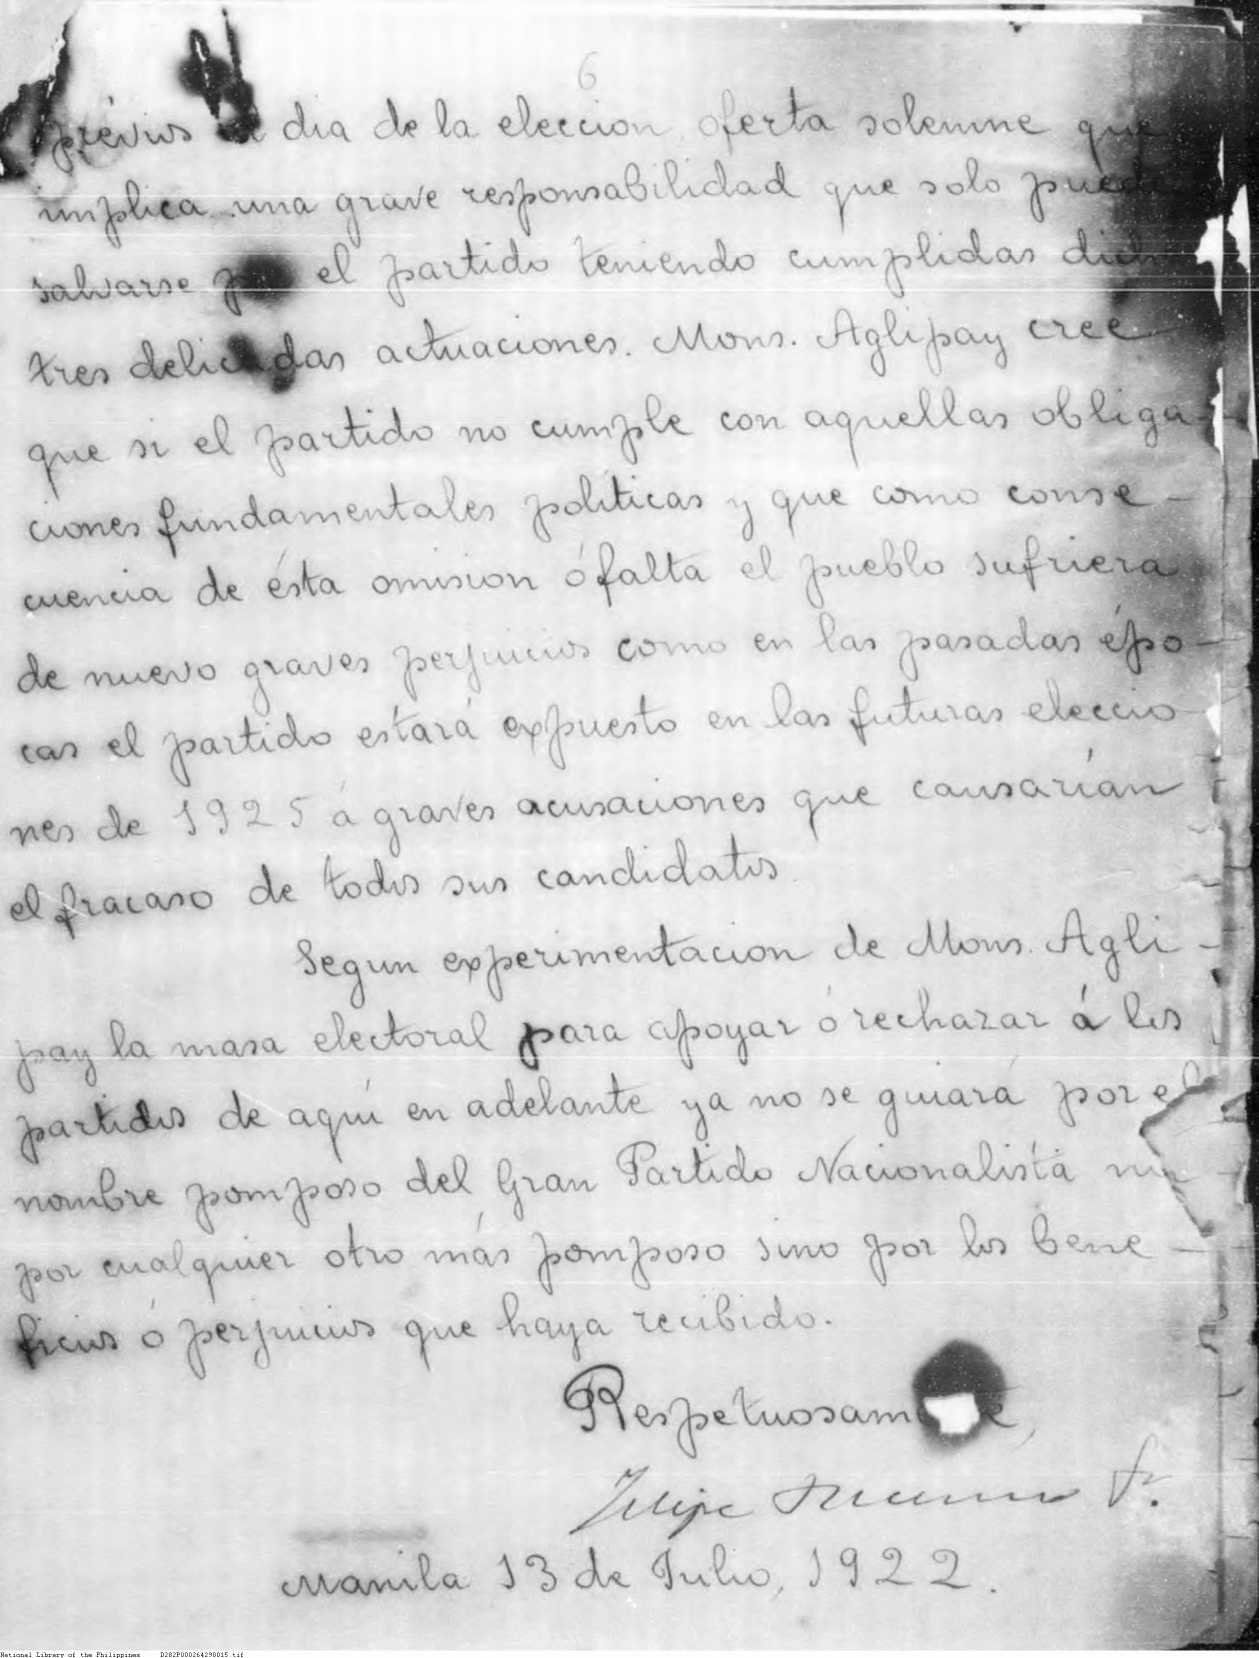 6
prévios al dia de la eleccion, oferta solemne que
implica una grave responsabilidad que solo puede
salvarse por el partido teniendo cumplidas dich
tres delicadas actuaciones. Mons. Aglipay cree
que si el partido no cumple con aquellas obliga-
ciones fundamentales políticas y que como conse-
cuencia de ésta omision ó falta el pueblo sufriera
de nuevo graves perjuicios como en las pasadas épo-
cas el partido estará expuesto en las futuras eleccio-
nes de 1925 á graves acusaciones que causarían
el fracaso de todos sus candidatos.
Segun experimentacion de Mons. Agli-
pay la masa electoral para apoyar ó rechazar á los
partidos de aquí en adelante ya no se guiará por el
nombre pomposo del Gran Partido Nacionalista ni
por cualquier otro más pomposo sino por los bene-
ficios ó perjuicios que haya recibido.
Respetuosamente,
Felipe
Manila 13 de Julio, 1922.
National Library of the Philippines D282P000264290015.tif